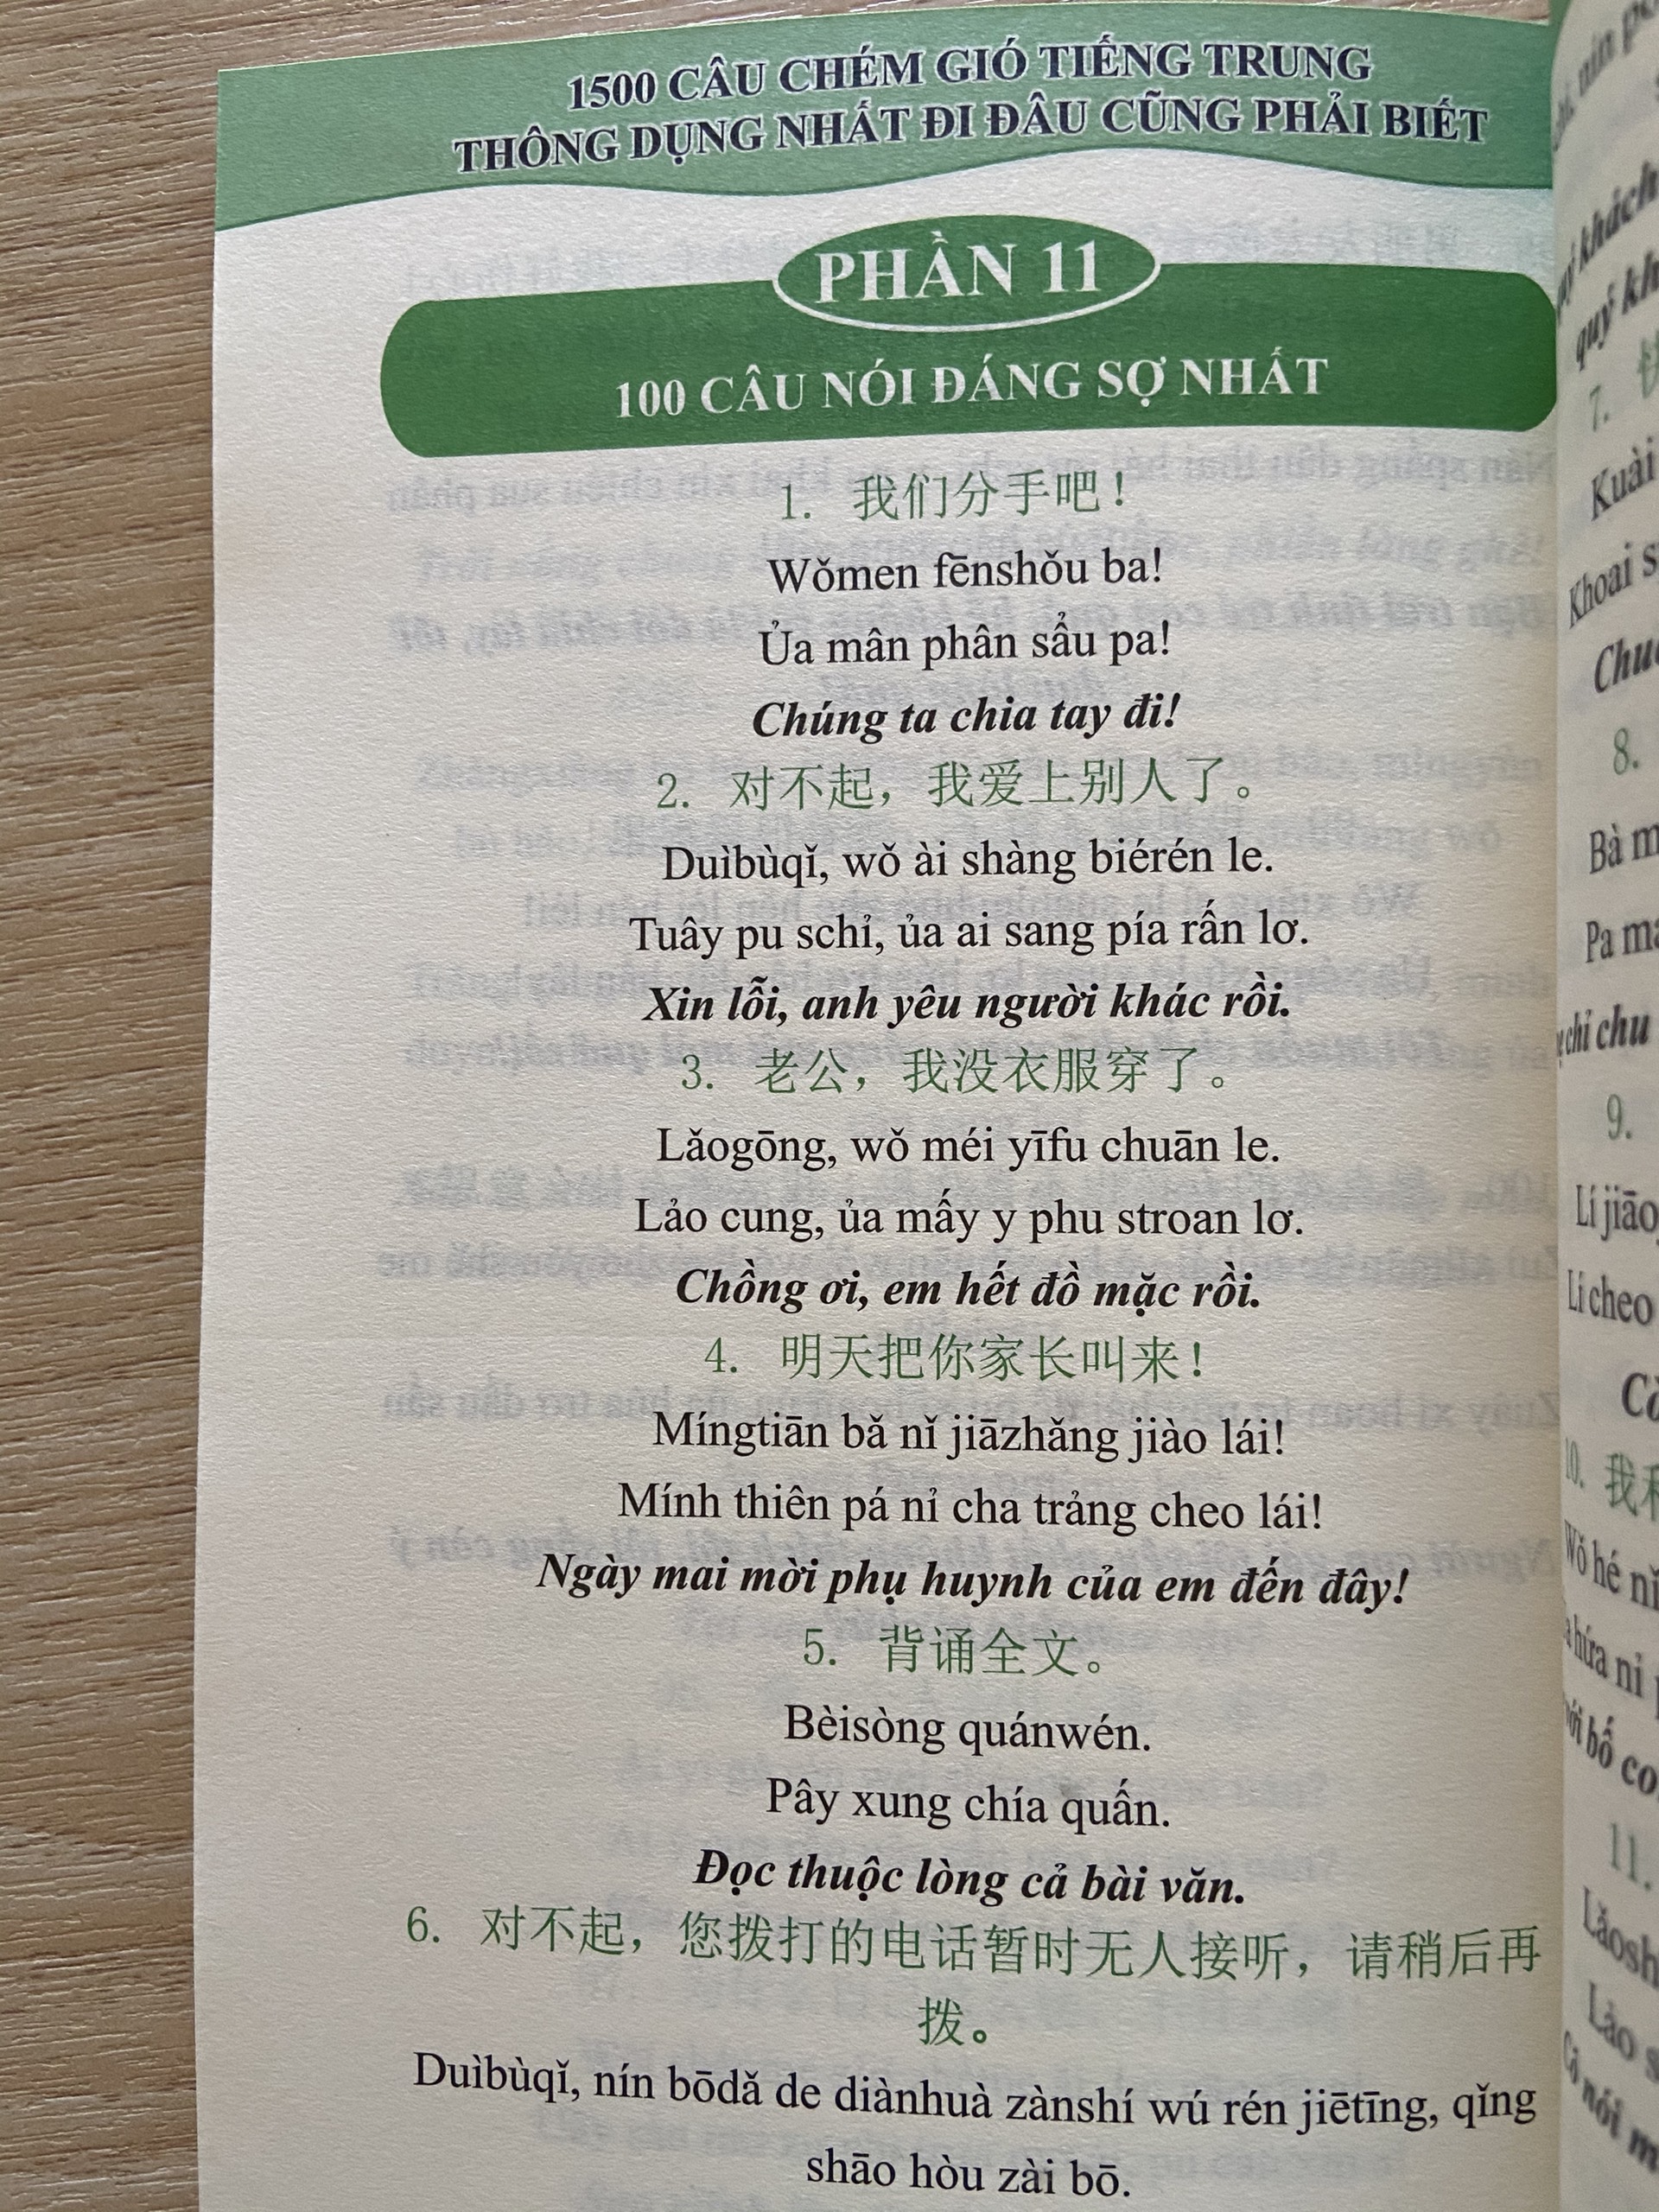 1500 CÂU CHÉM GIÓ TIẾNG TRUNG
THÔNG DỤNG NHẤT ĐI ĐÂU CŨNG PHẢI BIẾT
PHẦN 11
100 CÂU NÓI ĐÁNG SỢ NHẤT
1. 我们分手吧！
Wǒmen fēnshǒu ba!
Ủa mân phân sẩu pa!
Chúng ta chia tay đi!
2. 对不起，我爱上别人了。
Duìbùqǐ, wǒ ài shàng biérén le.
Tuây pu schỉ, ủa ai sang pía rấn lơ.
Xin lỗi, anh yêu người khác rồi.
3. 老公，我没衣服穿了。
Lǎogōng, wǒ méi yīfu chuān le.
Lảo cung, ủa mấy y phu stroan lơ.
Chồng ơi, em hết đồ mặc rồi.
4. 明天把你家长叫来！
Míngtiān bǎ nǐ jiāzhǎng jiào lái!
Mính thiên pá nỉ cha trảng cheo lái!
Ngày mai mời phụ huynh của em đến đây!
5. 背诵全文。
Bèisòng quánwén.
Pây xung chía quấn.
Đọc thuộc lòng cả bài văn.
6. 对不起，您拨打的电话暂时无人接听，请稍后再
拨。
Duìbùqǐ, nín bōdǎ de diànhuà zànshí wú rén jiētīng, qǐng
shāo hòu zài bō.
khách
quý
7.
Kuài
Khoai
8.
Bà
Pa
chỉ chu
9.
Lí
Lí cheo
10. 我
Wǒ hé nǐ
hứa nỉ
bố
11.
Lảo
nói